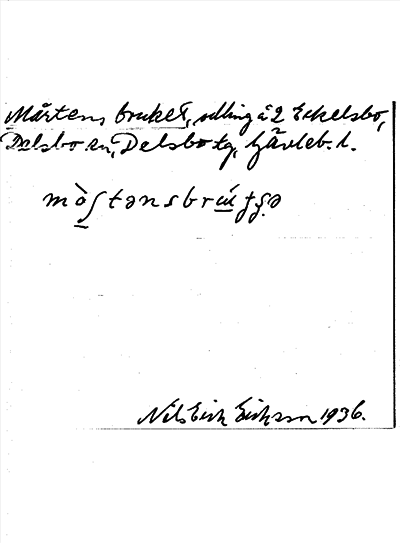 Mårtens bruket, utling å 2 Eckelsbo,
Delsbo sn, Delsbo tg, Gävleb. l.
mòʃtənsbrútʂə
Nils Eick Eickson 1936.